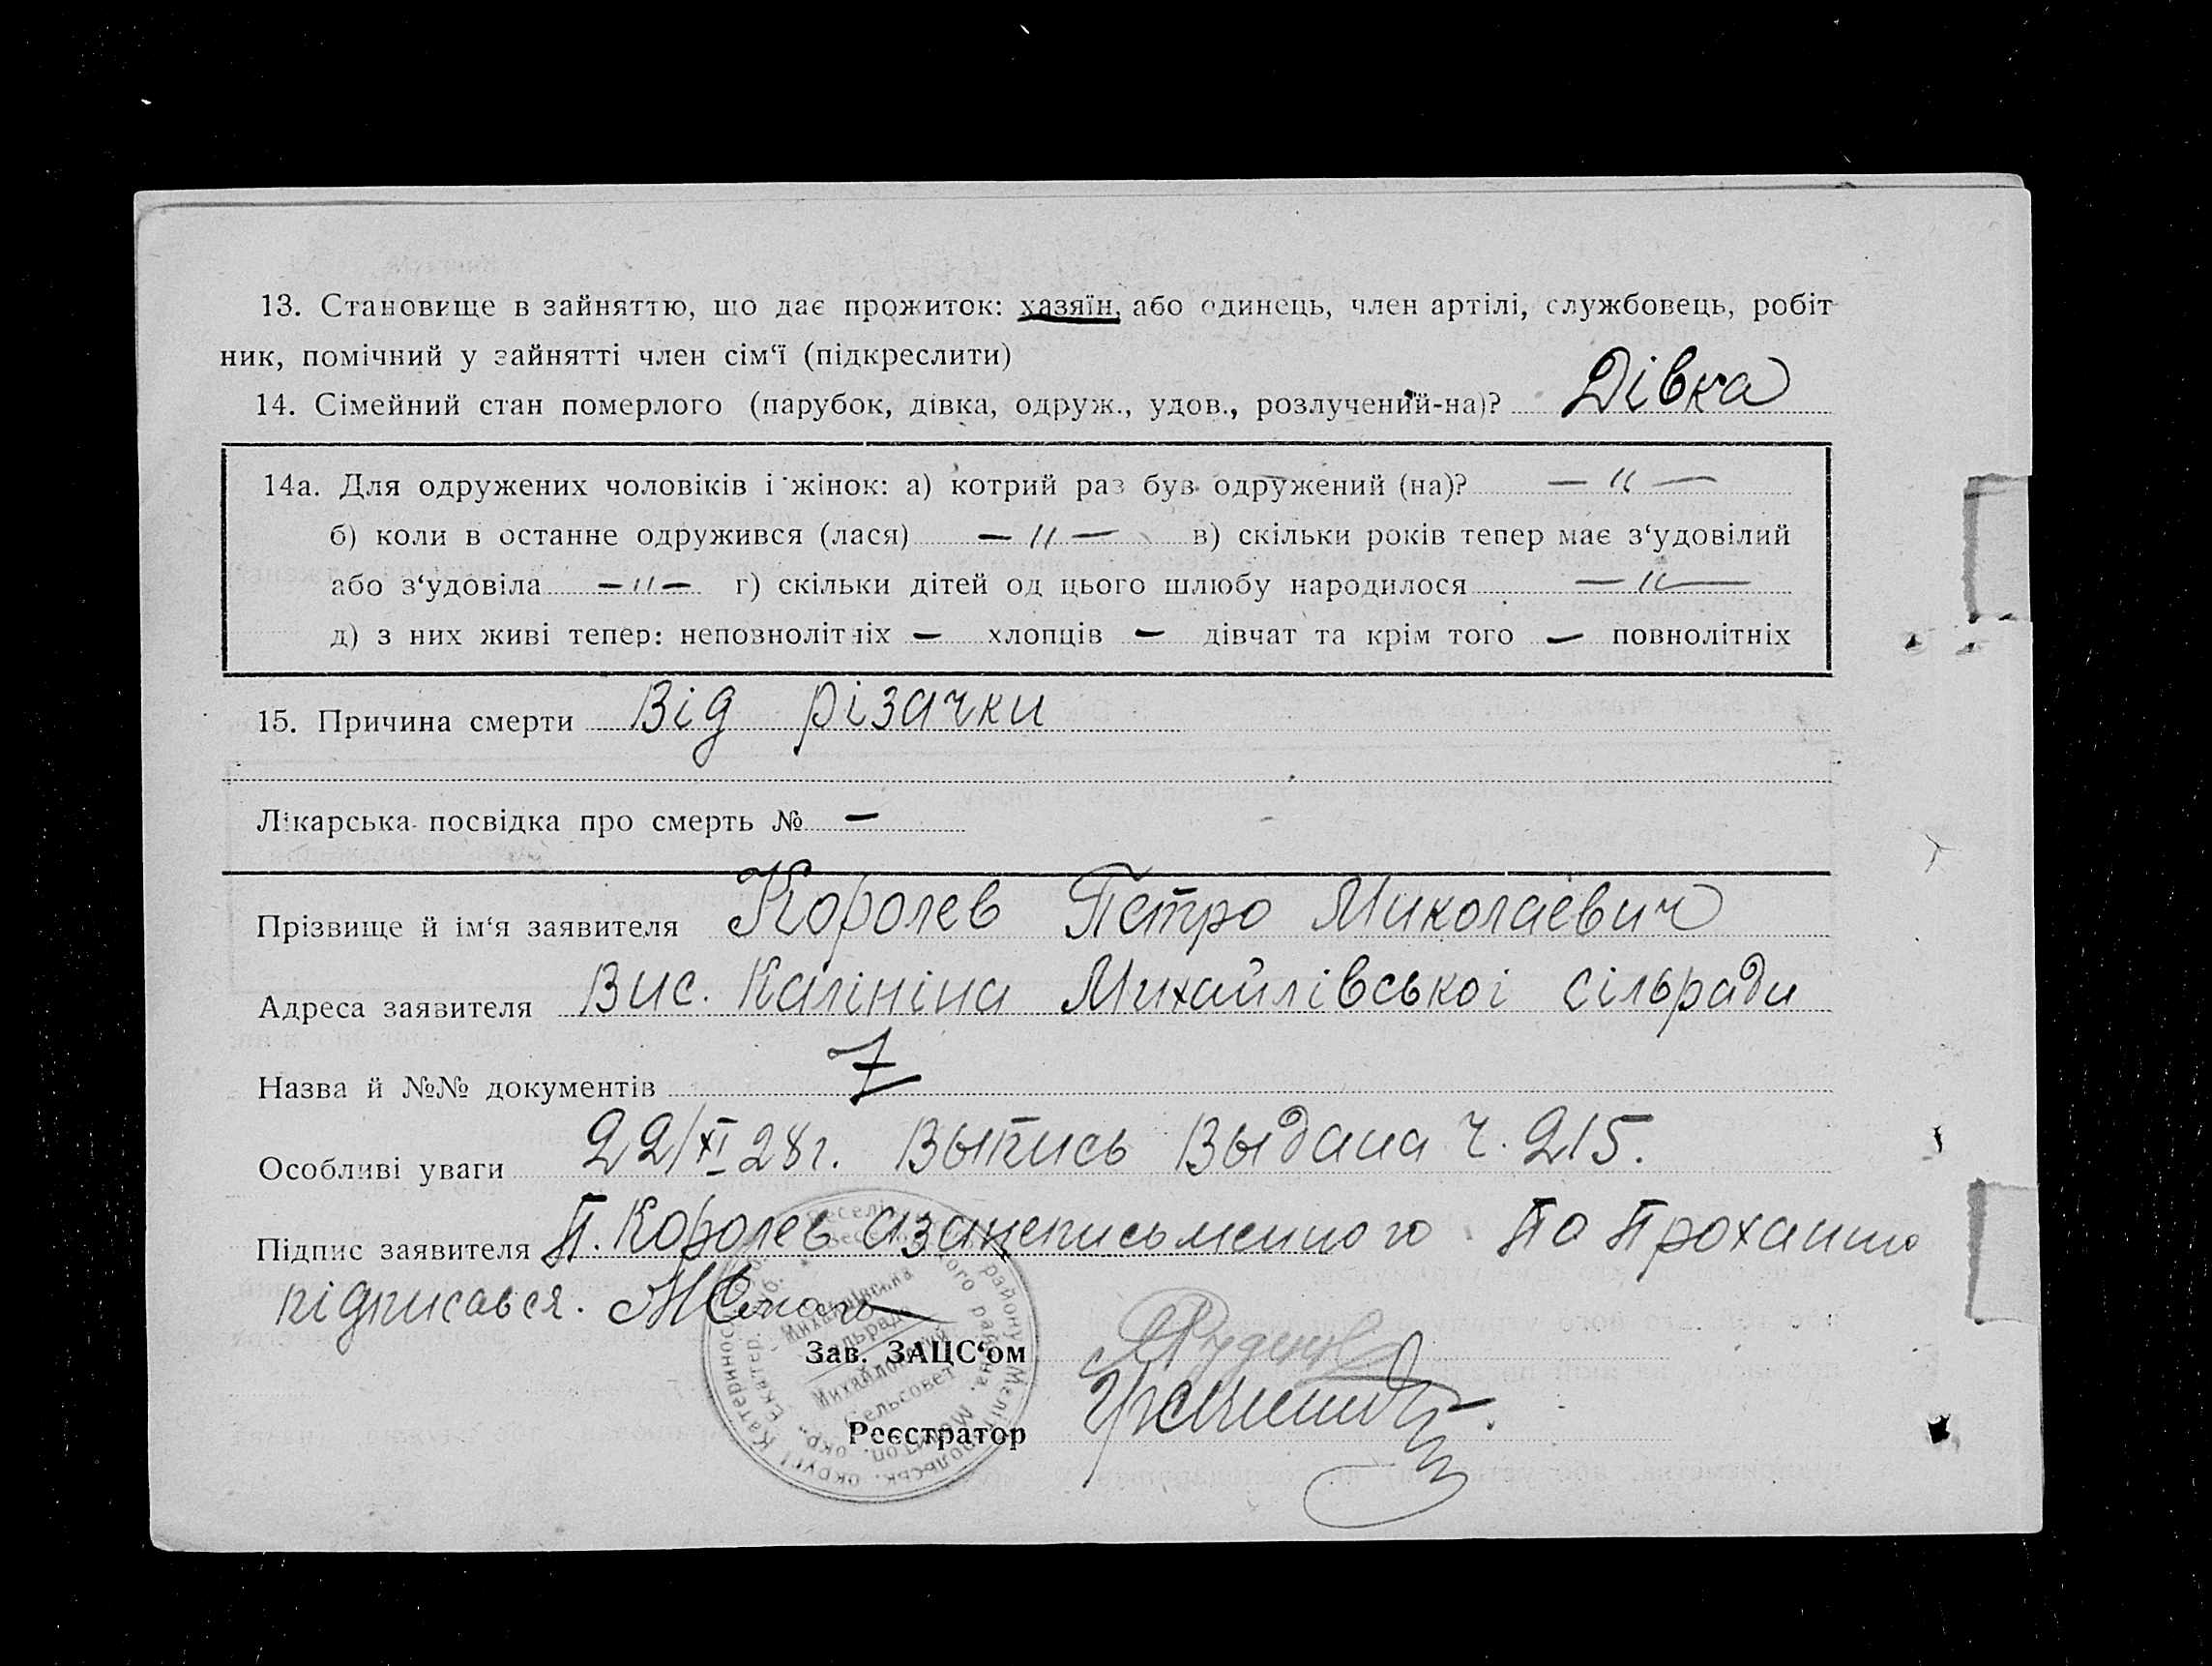 13. Становище в зайняттю, що дає прожиток: хазяїн, або одинець, член артілі, службовець, робіт-
ник, помічний у зайнятті член сім‘ї (підкреслити)
14. Сімейний стан померлого (парубок, дівка, одруж., удов., розлучений-на)? Дівка
14а. Для одружених чоловіків і жінок: а) котрий раз був одружений (на)? — " —
б) коли в останнє одружився (лася) — " — в) скільки років тепер має з‘удовілий
або з‘удовіла — " — г) скільки дітей од цього шлюбу народилося — " —
д) з них живі тепер: неповнолітніх — хлопців — дівчат та крім того — повнолітніх
15. Причина смерти Від різачки
Лікарська посвідка про смерть № —
Прізвище й ім‘я заявителя Королев Петро Миколаевич
Адреса заявителя Вис. Калініна Михайлівськоі сільради
Назва й №№ документів
Особливі уваги 22/XI 28 г. Выпись Выдана ч. 215.
Підпис заявителя П. Королев а за неписьменного По Проханню
підписався.
Зав. ЗАЦС‘ом
Реєстратор
Михайлівська
сільрада
Михайловский
сельсовет